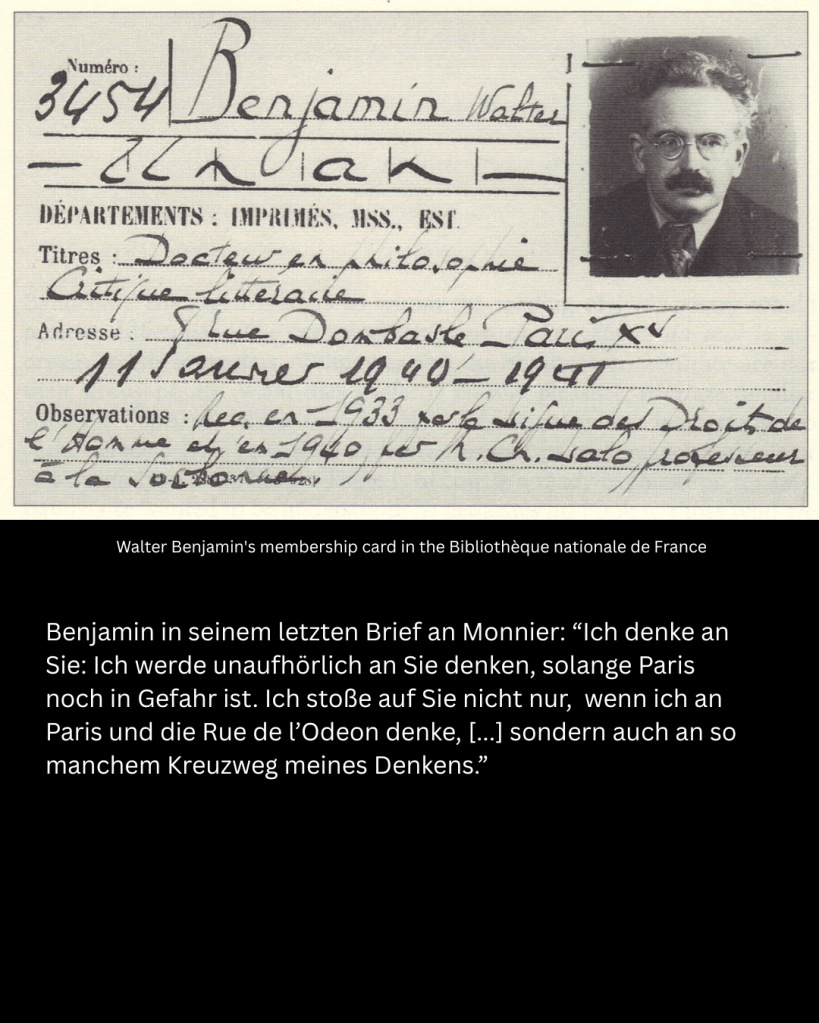 Numéro :
3454
Benjamin Walter
DÉPARTEMENTS : IMPRIMÉS, MSS., EST.
Titres : Docteur en philosophie
Critique littéraire
Adresse : rue Dombasle Paris XV
11 Janvier 1940 - 1941
Observations : Rec. en 1933 par la des Droits de
l'Homme et en 1940 par M. Ch. professeur
à la Sorbonne.
Walter Benjamin's membership card in the Bibliothèque nationale de France
Benjamin in seinem letzten Brief an Monnier: “Ich denke an
Sie: Ich werde unaufhörlich an Sie denken, solange Paris
noch in Gefahr ist. Ich stoße auf Sie nicht nur,  wenn ich an
Paris und die Rue de l’Odeon denke, [...] sondern auch an so
manchem Kreuzweg meines Denkens.”